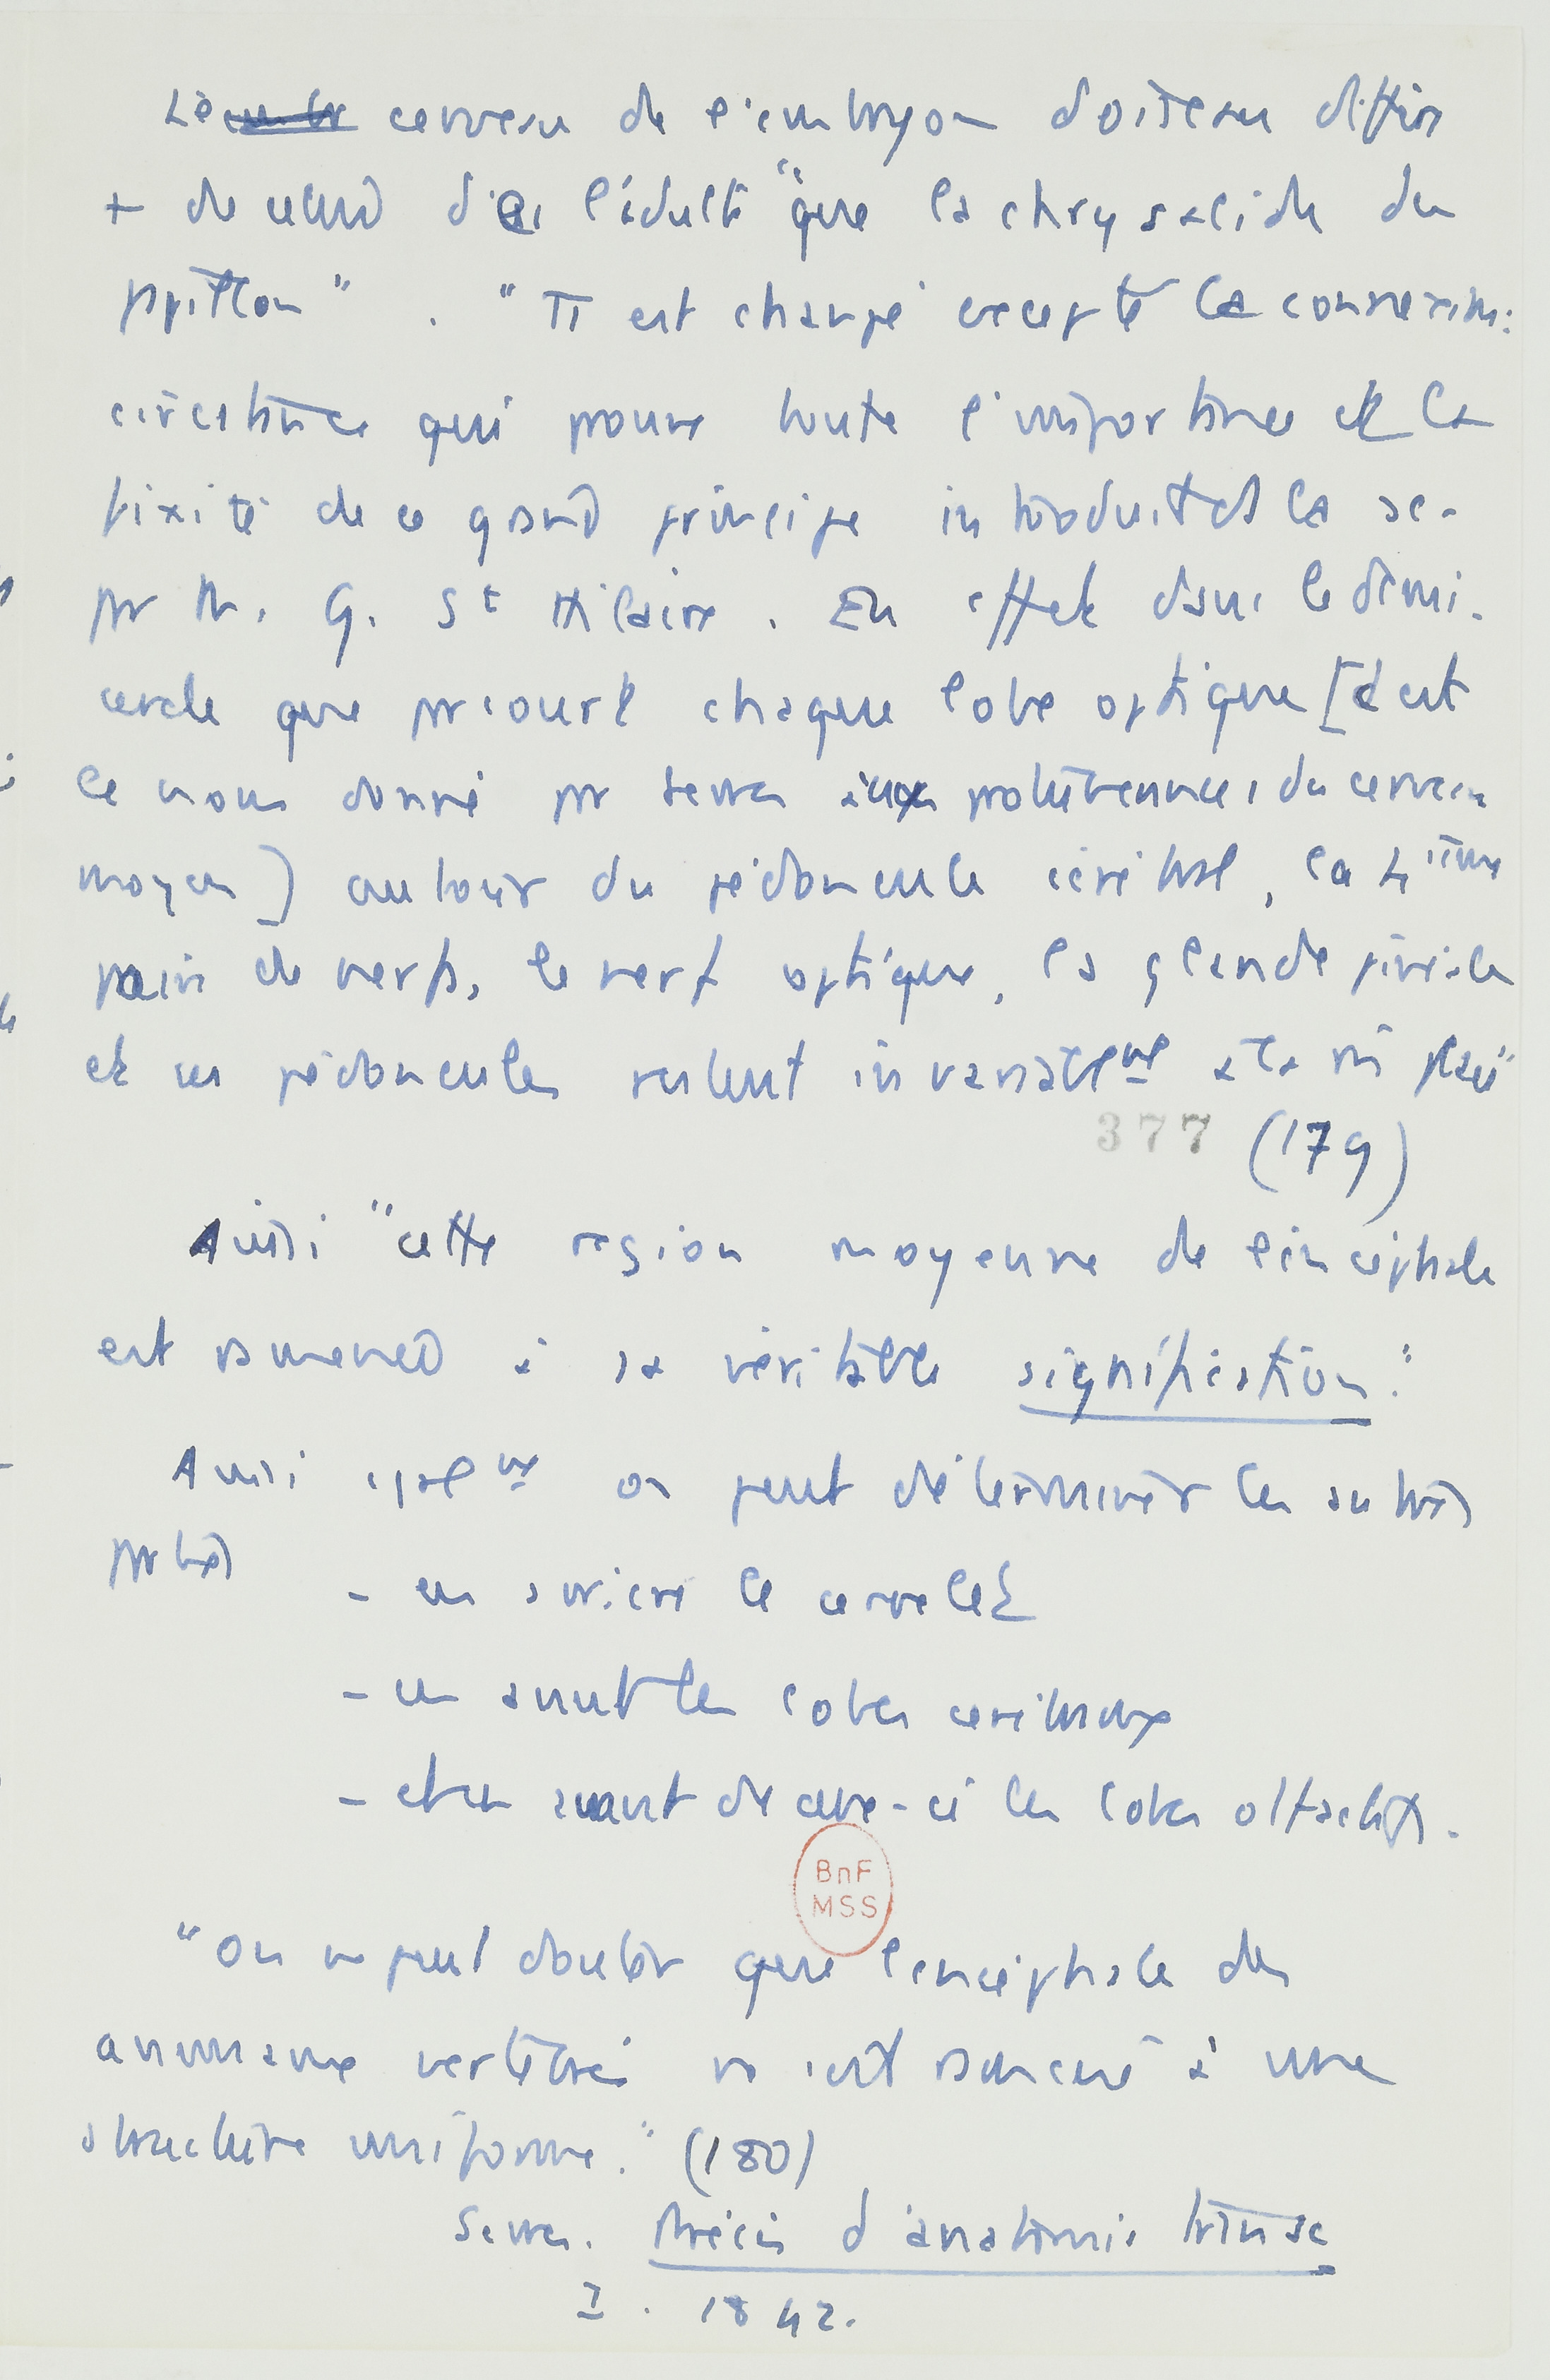 Le cerveau de l'embryon d'oiseau diffère
+ de celui de l'adulte "que la chrysalide du
papillon". "Tt est changé excepté la connexion :
circstance qui prouve toute l'importance et la
fixité de ce grand principe introduit ds la sc.
par M. G. St Hilaire. En effet dans le demi-
cercle que parcourt chaque lobe optique [c'est
le nom donné par Serres aux protubérances du cerveau
moyen] autour du pédoncule cérébral, la 4ième
paire de nerfs, le nerf optique, la glande pinéale
et ses pédoncules restent invariablemt à la mê place"
377 (179)
Ainsi "cette région moyenne de l'encéphale
est ramenée à sa véritable signification."
Ainsi égalemt on peut déterminer les autres
parties
- en arrière le cervelet
- en avant les lobes cérébraux
- et en avant de ceux-ci les lobes olfactifs.
BnF
MSS
"On ne peut douter que l'encéphale des
animaux vertébrés ne soit ramené à une
structure uniforme." (180)
Serres. Précis d'anatomie transc
I. 1842.